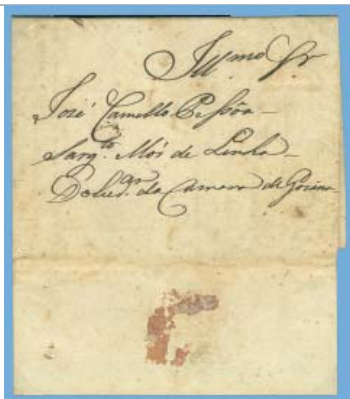 Illmo Sr
José Camello Pessôa
Sargto Mór de Linha
da Camara de Goiana